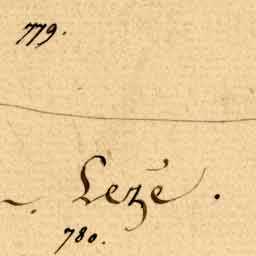 779.
Leze .
780.